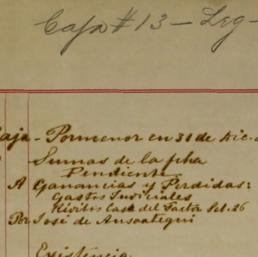 Caja #13 - Leg-
Caja - Pormenor en 31 de Dic.
Sumas de la fcha
Pendiente
A Ganancias y Perdidas:
Gastos Judiciales
Casa del Factor Set. 26
Por José de Ansoategui
Existencia